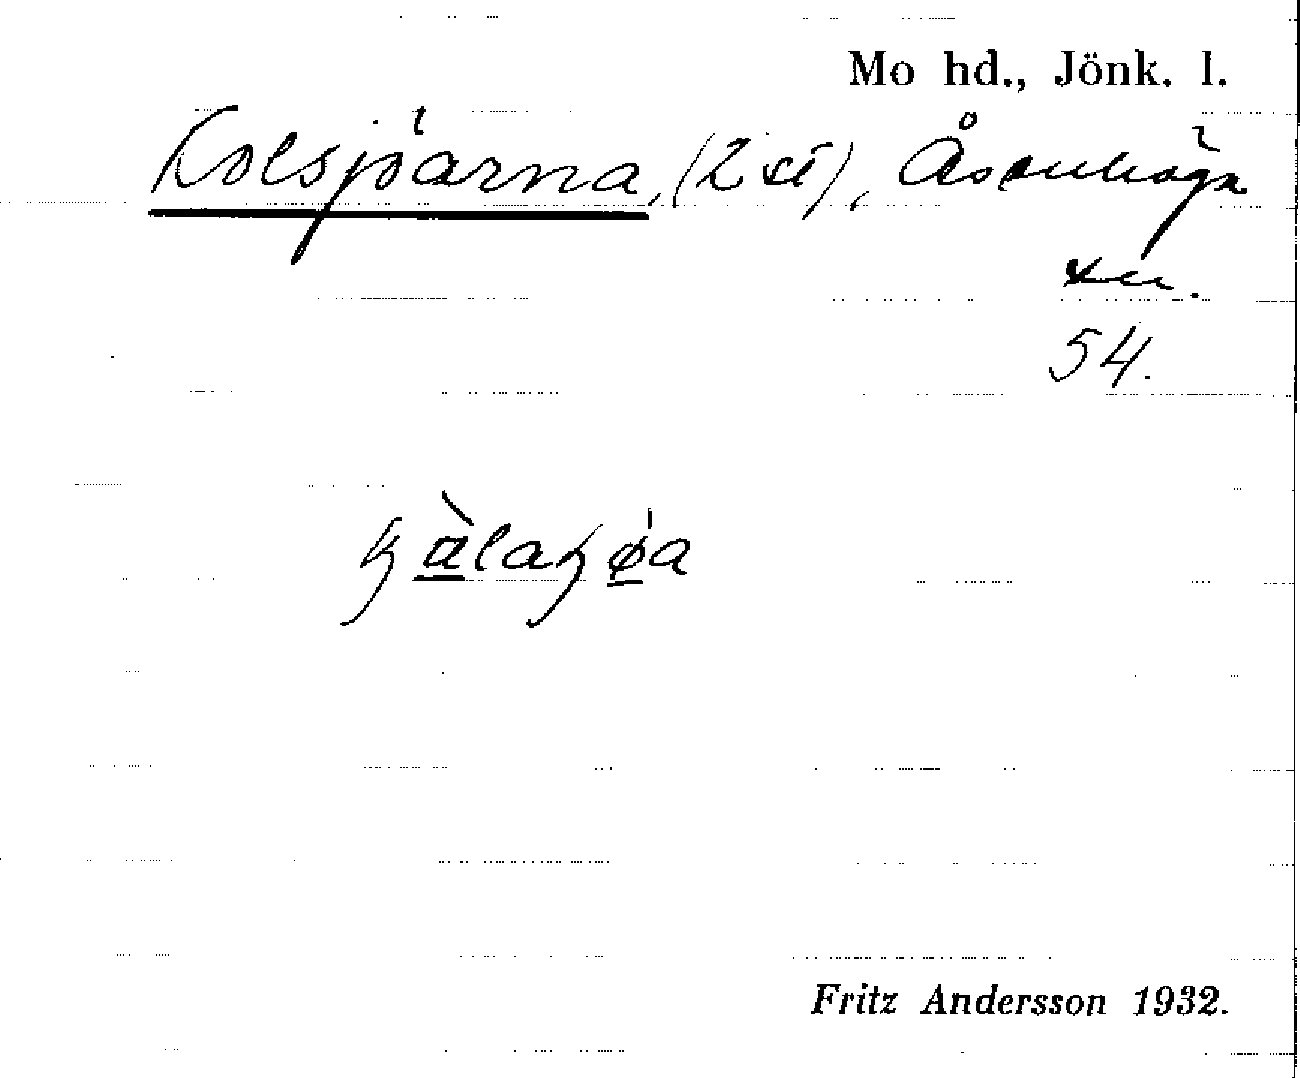 Mo hd., Jönk. l.
Kolsjöarna, (2 st), Åsenhöga
sn.
54.
Fritz Andersson 1932.